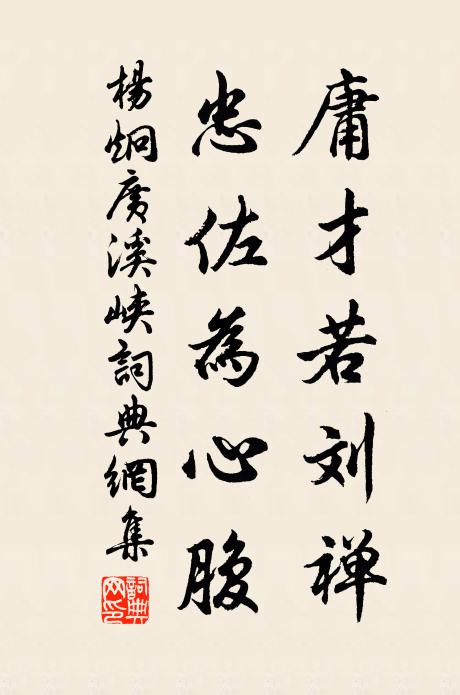 庸才若刘禅
忠佐為心腹
楊炯廣溪峽詞典網集
詞典网印